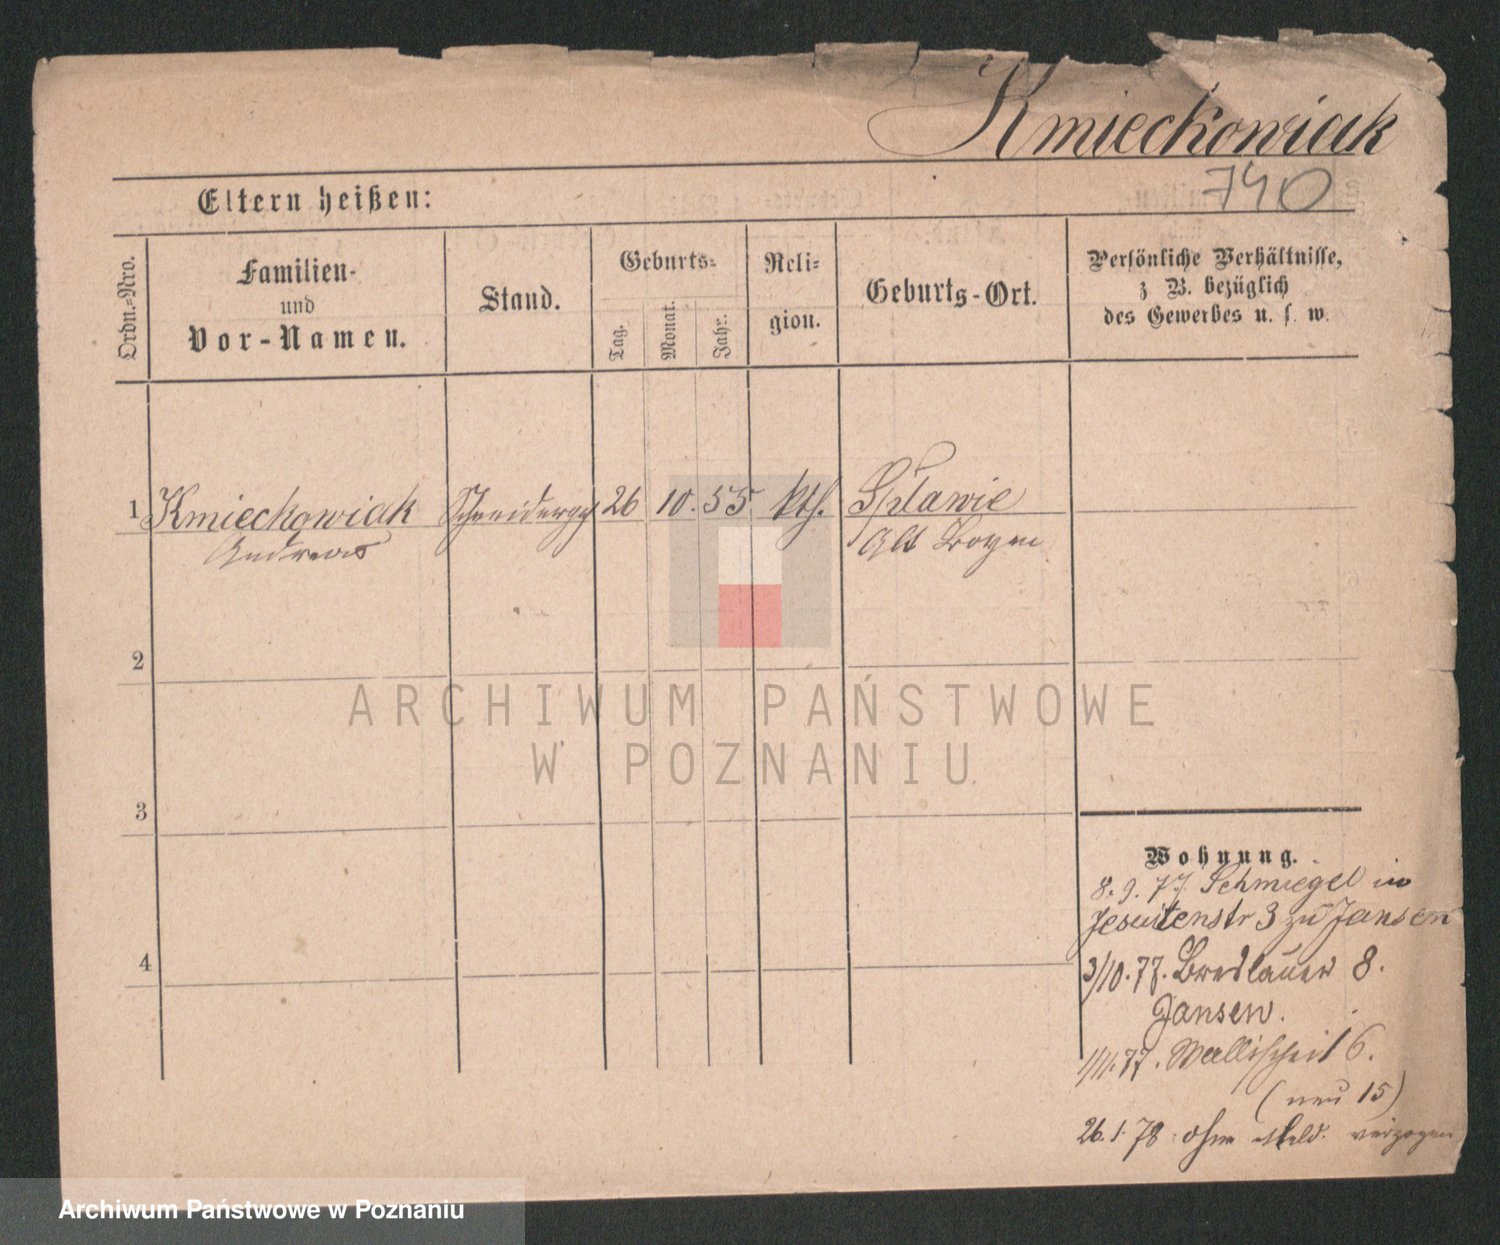 Kmieckowiak
740
Eltern heißen:
Ordn.-Nro.
Familien-
und
Vor-Namen.
Stand.
Geburts-
Tag.
Monat.
Jahr.
Reli-
gion.
Geburts-Ort.
Persönliche Verhältnisse,
z. B. bezüglich
des Gewerbes u. s. w.
1 Kmieckowiak Schneidergs 26 10. 55. kth. Spławie
Andreas Alt Boyen
2
3
4
Wohnung.
8.9.77. Schmiegel in
Jesuitenstr 3 zu Jansen
3/10.77. Breslauer 8.
Jansen.
1/11.77. Wallischei 16.
(neu 15)
26.1.78 ohne Meld. verzogen
ARCHIWUM PAŃSTWOWE
W POZNANIU
Archiwum Państwowe w Poznaniu